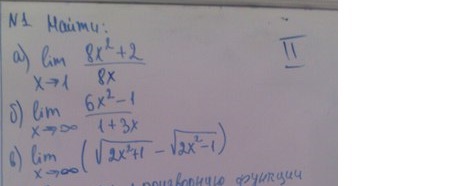 №1 Найти:
II
а) lim x→1 (8x²+2)/(8x)
б) lim x→∞ (6x²-1)/(1+3x)
в) lim x→∞ (√(2x²+1) - √(2x²-1))
производную функции